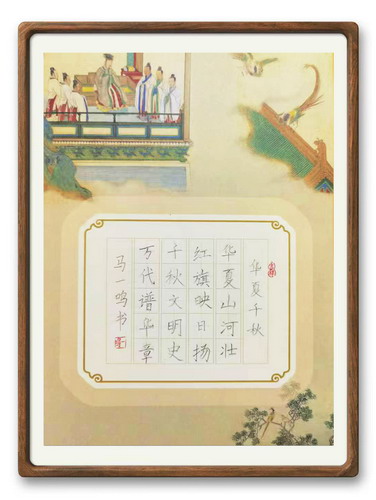 华夏千秋
华夏山河壮
红旗映日扬
千秋文明史
万代谱华章
马一鸣书